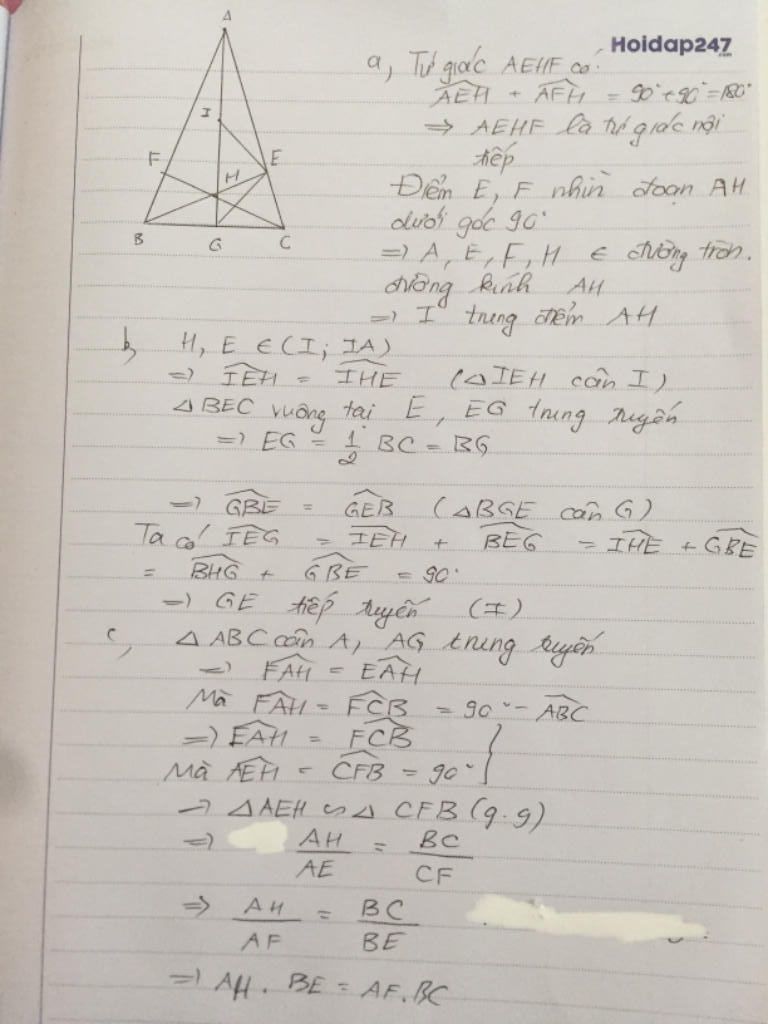 A
Hoidap247
.com
a, Tứ giác AEHF có:
AEH + AFH = 90° + 90° = 180°
I
=> AEHF là tứ giác nội
tiếp
F
E
H
Điểm E, F nhìn đoạn AH
dưới góc 90°
B
G
C
=> A, E, F, H ∈ đường tròn.
đường kính AH
=> I trung điểm AH
b, H, E ∈ (I; IA)
=> IEH = IHE (△ IEH cân I)
△ BEC vuông tại E, EG trung tuyến
=> EG = 1/2 BC = BG
=> GBE = GEB (△BGE cân G)
Ta có IEG = IEH + BEG = IHE + GBE
= BHG + GBE = 90°
=> GE tiếp tuyến (I)
c, △ ABC cân A, AG trung tuyến
=> FAH = EAH
Mà FAH = FCB = 90° - ABC
=> EAH = FCB
Mà AEH = CFB = 90° }
=> △ AEH ∽ △ CFB (g.g)
=> AH/AE = BC/CF
=> AH/AF = BC/BE
=> AH. BE = AF. BC